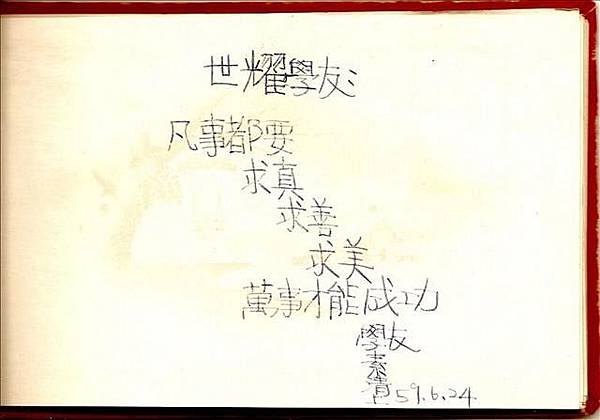 世耀學友:
凡事都要
求真
求善
求美
萬事才能成功
學友
素清上
59.6.24.